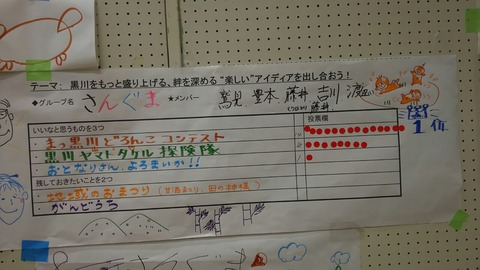 テーマ:黒川をもっと盛り上げる、絆を深める“楽しい”アイディアを出し合おう!
◆グループ名 さんぐま ★メンバー 鷲見 豊本 藤井 吉川 渡辺
いいなと思うものを3つ 投票欄
・まっ黒川どろんこコンテスト
・黒川ヤマトタケル探険隊
・おとなりさん、よろまいか!!
残しておきたいことを2つ
・地域のおまつり(甘酒まつり、田の神様)
・がんどうち
1位